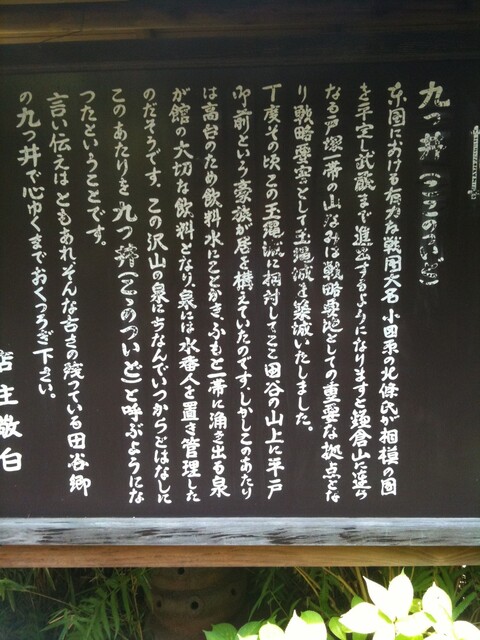 九つ井（ここのついど）
東国における有力な戦国大名 小田原の北條氏が相模の国
を平定し武蔵まで進出するようになりますと鎌倉山に連ら
なる戸塚一帯の山なみは戦略要地としての重要な拠点とな
り戦略要害として玉縄城を築城いたしました。
丁度その頃この玉縄城に相対してここ田谷の山上に平戸
御前という豪族が居を構えていたのです。しかしこのあたり
は高台のため飲料水にことかき、ふもと一帯に涌き出る泉
が館の大切な飲料となり、泉には水番人を置き管理した
のだそうです。この沢山の泉にちなんでいつからとはなしに
このあたりを九つ井（こゝのついど）と呼ぶようにな
つたということです。
言い伝えはともあれ、そんな古さの残っている田谷郷
の九つ井で心ゆくまでおくつろぎ下さい。
店主敬白